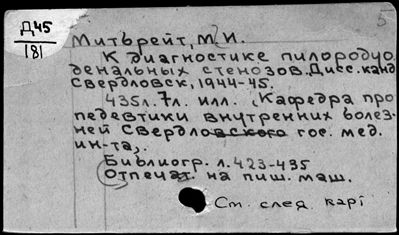 Д45
181
5
Митьрейт, М.И.
К диагностике пилородуо
денальных стенозов. Дисс. канд
Свердловск, 1944-45.
435л. 7л. илл. (Кафедра про
педевтики внутренних болез-
ней Свердловского гос. мед.
ин-та).
Библиогр. л. 423-435
Отпечат. на пиш. маш.
См. след. карт